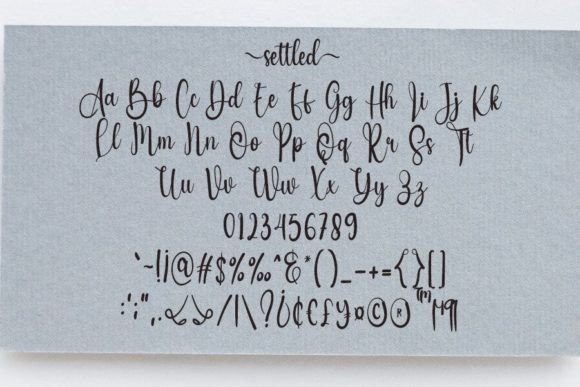 ~settled~
Aa Bb Cc Dd Ee Ff Gg Hh Ii Jj Kk
Ll Mm Nn Oo Pp Qq Rr Ss Tt
Uu Vv Ww Xx Yy Zz
0123456789
`~!¡@#$%‰^&*()_-+={}[]
:;'",.<>/|\?¿¢€£¥¤©®™µ¶